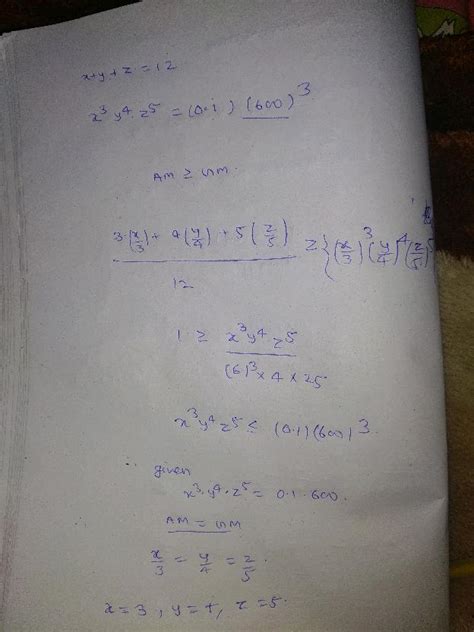 x+y+z = 12
x³ y⁴. z⁵ = (0.1) (600)³
AM ≥ GM.
3(x/3) + 4(y/4) + 5(z/5) / 12 ≥ {(x/3)³ (y/4)⁴ (z/5)⁵
1 ≥ x³y⁴z⁵ / (6)³ × 4 × 25
x³y⁴z⁵ ≤ (0.1)(600)³.
given
x³.y⁴.z⁵ = 0.1.600.
AM = GM
x/3 = y/4 = z/5.
x=3, y=4, z=5.